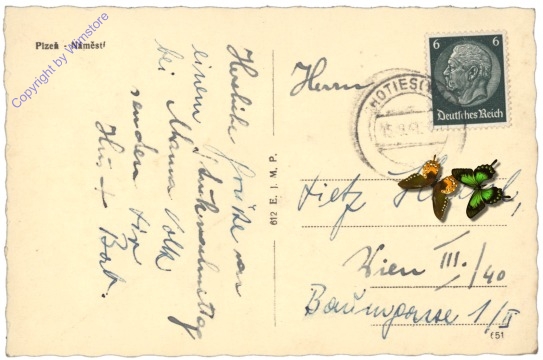 Plzeň - Náměstí
Copyright by Wimstore
Herzliche Grüße von
einem
bei Mama Volk
senden Dir
612 E. J. M. P.
6 6
Deutsches Reich
HOTIES
Herrn
Tietz
Wien III./40
Baumgasse 1/II
651